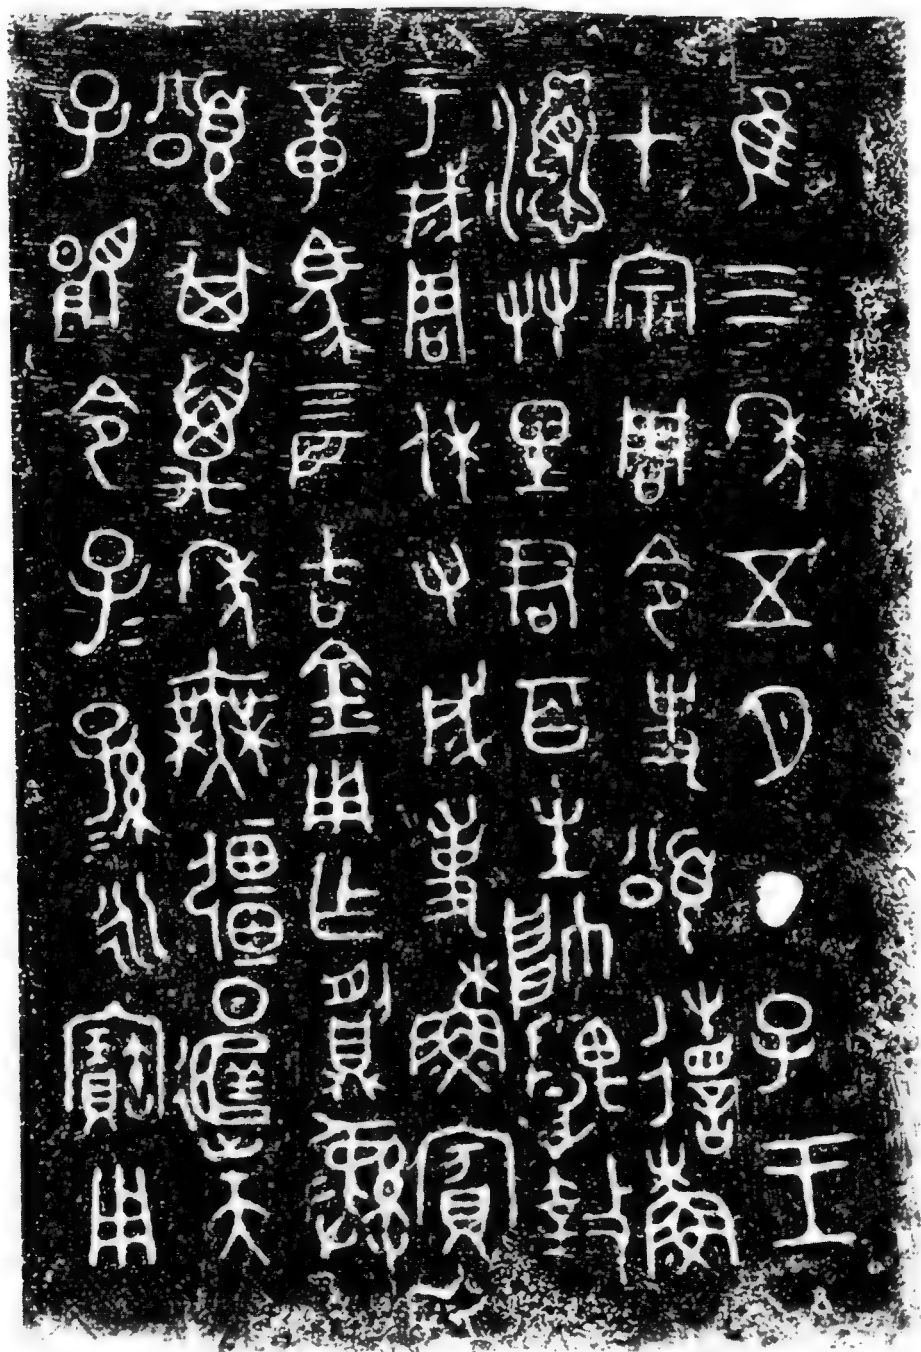 隹三年五月丁子王
才宗周令史頌省穌
友里君百生帥堣盩
于成周休又成事穌賓
章馬四匹吉金用乍䵼彝
頌其萬年無疆日天
子令子=孫=永寶用